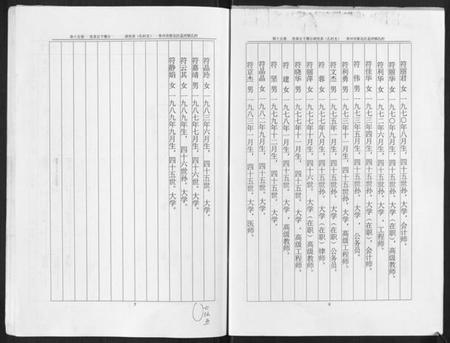 符丽君 女 一九七〇年八月生，四十五世孙，大学，会计师。
符丽华 女 一九七〇年九月生，四十五世孙，大学（在职），高级教师。
符利华 女 一九七二年六月生，四十五世孙，大学，工程师。
符佳华 女 一九七三年四月生，四十五世孙，大学（在职），会计师。
符 伟 男 一九七三年五月生，四十五世孙，大学，公务员。
符利勇 男 一九七三年十一月生，四十五世孙，大学，高级工程师。
符文杰 男 一九七五年一月生，四十五世孙，大学（在职）公务员。
符 蓉 女 一九七五年八月生，四十五世孙，大学（在职）律师。
符丽萍 女 一九七七年十月生，四十六世，大学（在职）高级教师。
符晓华 男 一九七七年十一月生，四十五世，大学，高级工程师。
符 建 女 一九七八年一月生，四十五世，大学，高级教师。
符 坚 男 一九七九年十一月生，四十五世，大学。
符晶晶 女 一九八二年九月生，四十五世，大学。
符京杰 男 一九八三年一月生，四十五世，大学，医师。
符晶玲 女 一九八三年六月生，四十五世，大学。
符嘉靖 男 一九八七年七月生，四十六世，大学。
符云其 女 一九八八年八月生，四十六世孙，大学。
符静娟 女 一九八九年九月生，四十五世，大学。